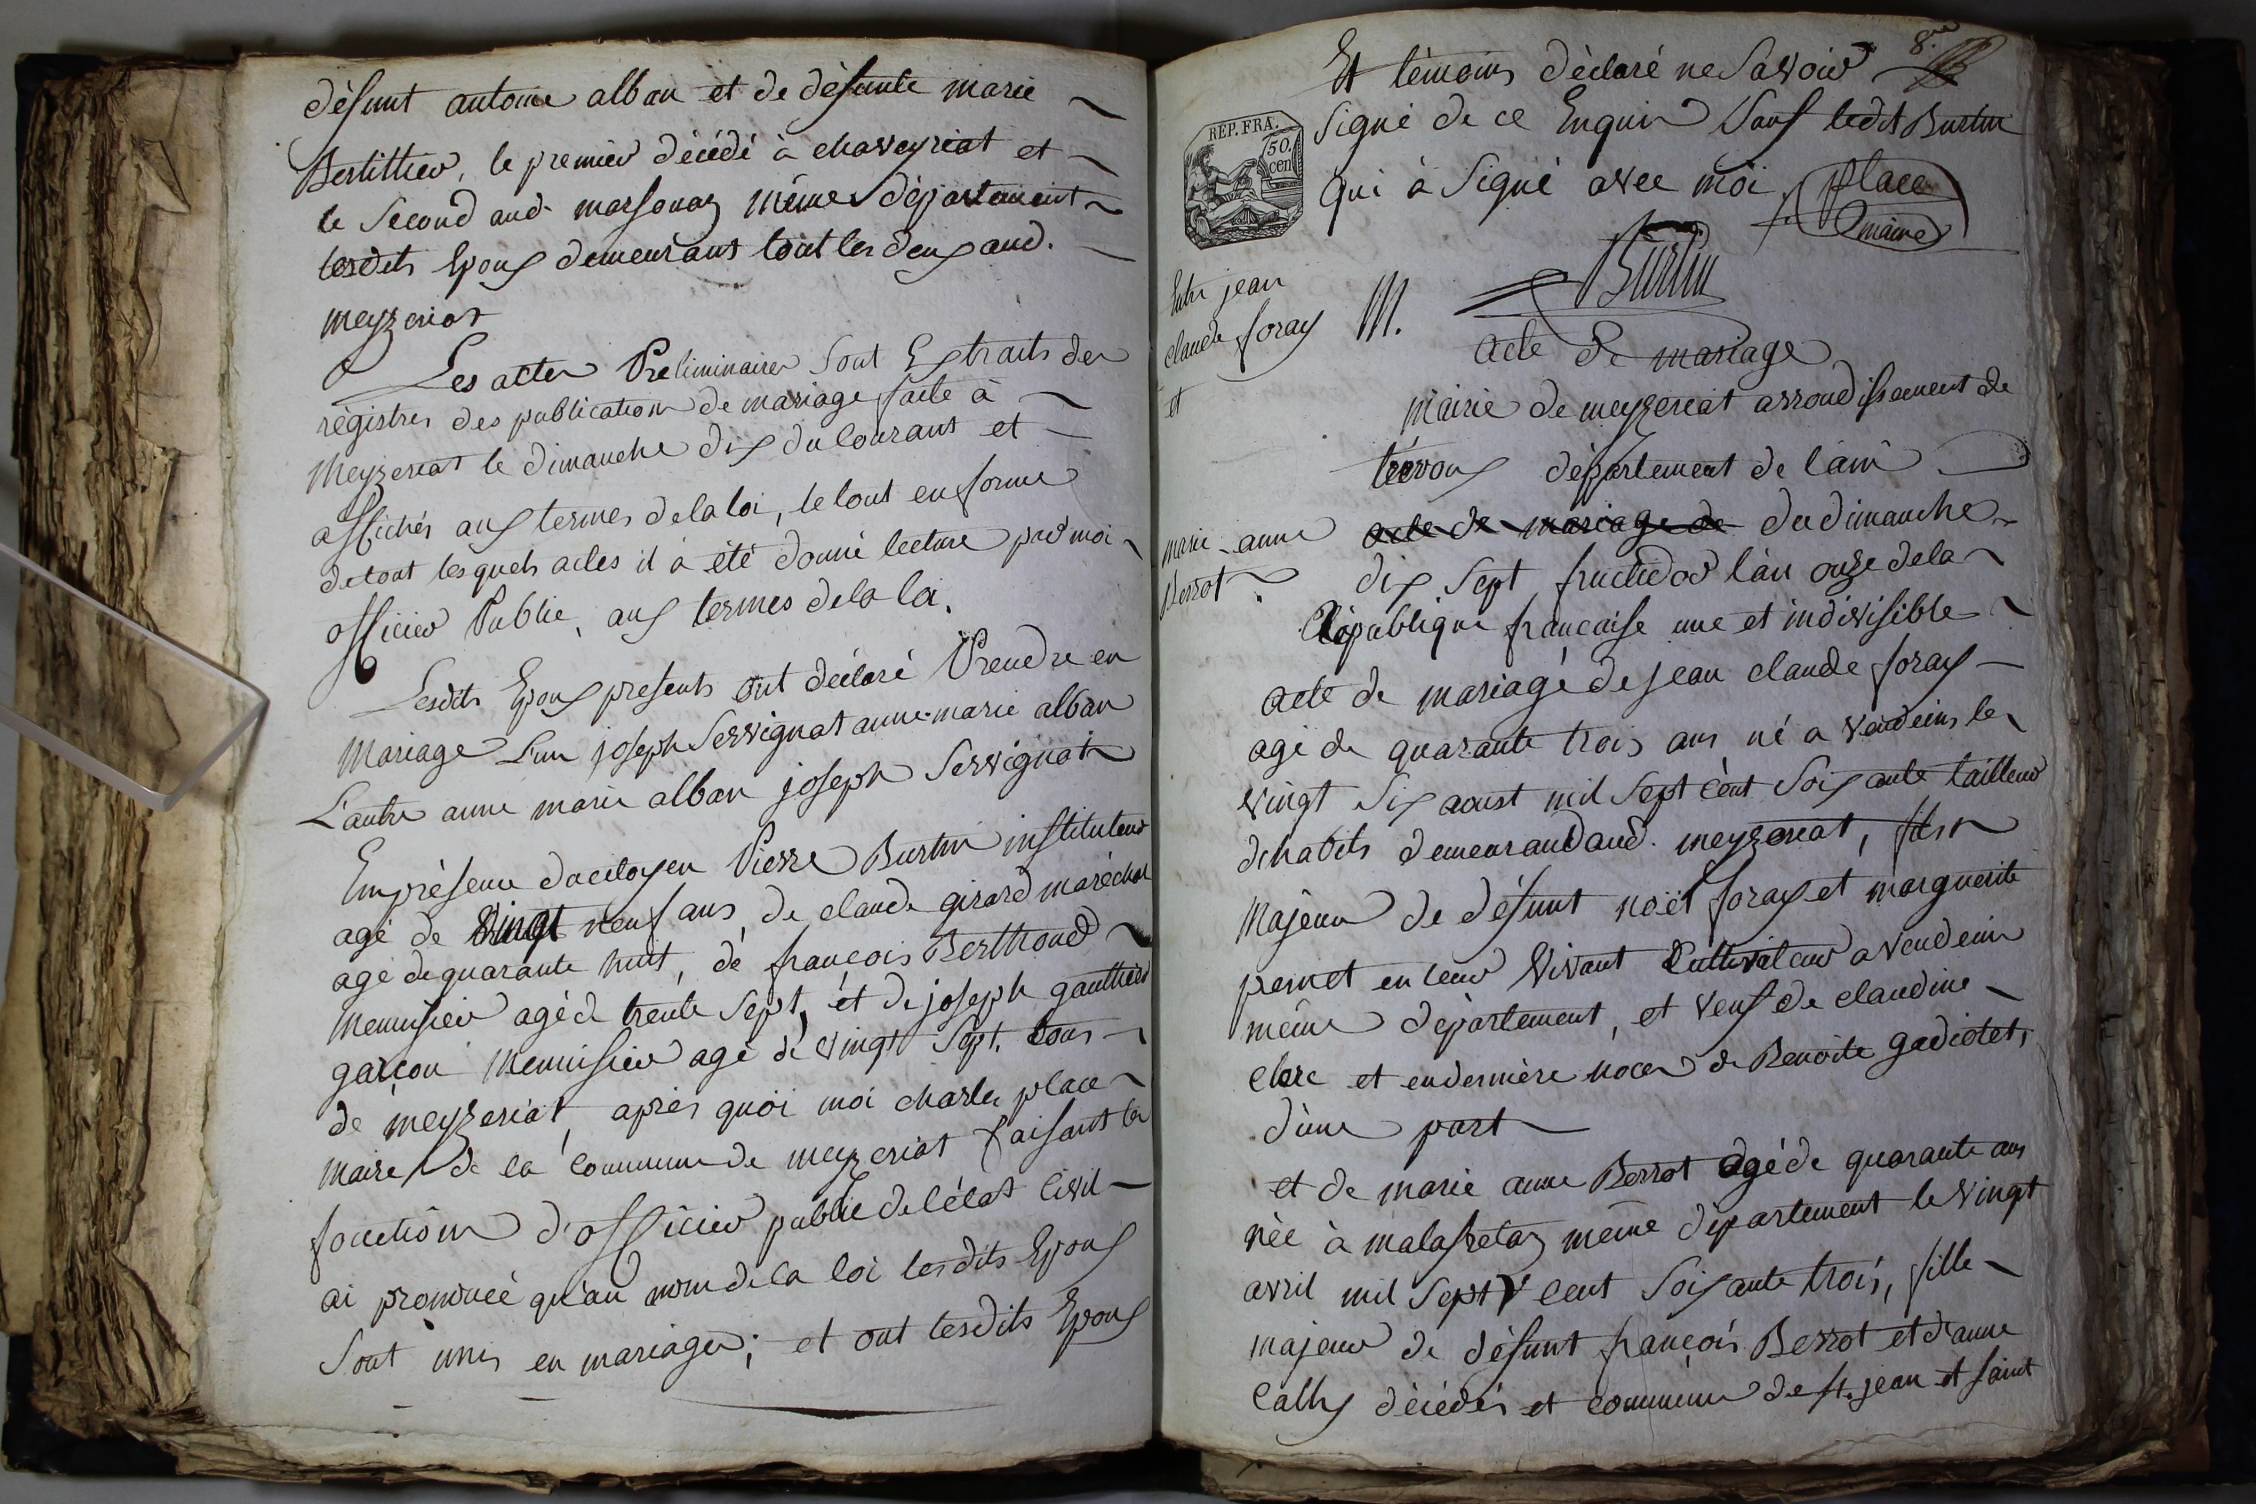 défunt antoine alban et de défunte marie
Bertillier, le premier décédé à chaveyriat et
le Second aud. marsonaz même département
lesdits Epoux demeurans tout les deux aud.
meyzeriat
Les actes Preliminaires Sont Extraits des
régistres des publication de mariage faite à
Meyzeriat le dimanche dix du Courant et
affichés aux termes de la loi, le tout en forme
de tout lesquels actes il à été donné lecture par moi
officier Public, aux termes de la loi.
Lesdits Epoux presents ont déclaré Prendre en
Mariage L'un joseph Servignat anne-marie alban
L'autre anne marie alban joseph Servignat
En présence du citoyen Pierre Burtin instituteur
agé de vingt neuf ans, de claude girard maréchal
agé de quarante huit, dé françois Berthoud
Menuisier agé de trente Sept, et de joseph gauthier
garçon Menuisier agé dé vingt Sept. tous
de meyzeriat, après quoi moi charles place
maire de la Commune de meyzeriat faisant les
fonction d'officier public de l'état Civil
ai prononcé qu'au nom de la loi lesdits Epoux
Sont unis en mariage; et ont lesdits Epoux
8.me
Et témoins déclaré ne Savoir
REP. FRA.
50.
cen
Signé de ce Enquis Sauf ledit Burtin
qui à Signé avec moi place
maire
Burtin
Entre jean
claude foray
et
marie-anne
Berrot
M.
acte de mariage
Mairie de meyzeriat arrondissement de
trévoux département de l'ain
acte de mariage de du dimanche
dix Sept fructidor l'an onze de la
République française une et indivisible
acte de mariagé de jean claude foray
agé de quarante trois ans né a vandeins le
vingt Six aoust mil Sept Cent Soixante tailleur
d'habits demeurand aud. meyzeriat, fils
Majeur de défunt noël foray et marguerite
pernet en leur Vivant Cultivateur a vendeins
même département, et veuf de claudine
clerc et en dernière noces de Benoite gadiolet,
d'une part
et de marie anne Berrot agé de quarante ans
née à malafretaz même département le vingt
avril mil Sept Cent Soixante trois, fille
majeur de défunt françois Berrot et d'anne
Callys décédés et commune de st. jean et Saint